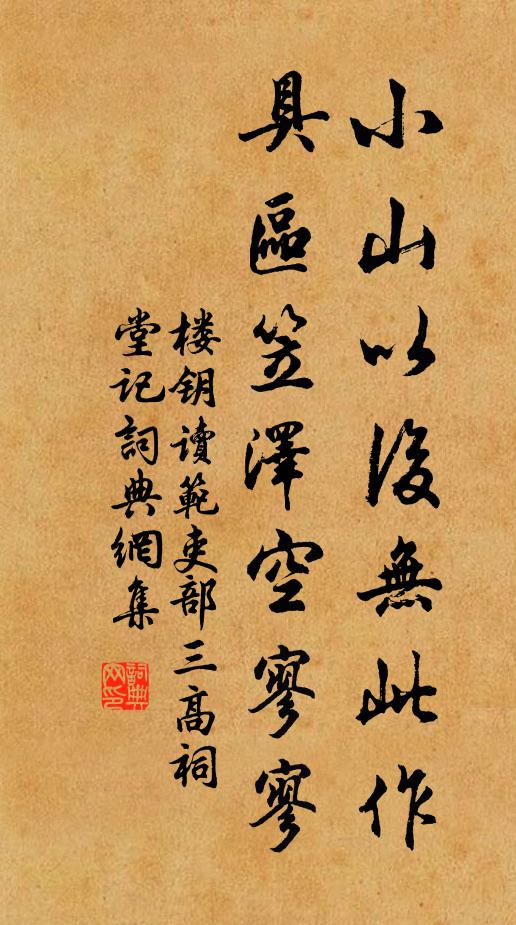 小山以後無此作
具區笠澤空寥寥
楼钥讀範吏部三高祠
堂记詞典網集
詞典网印